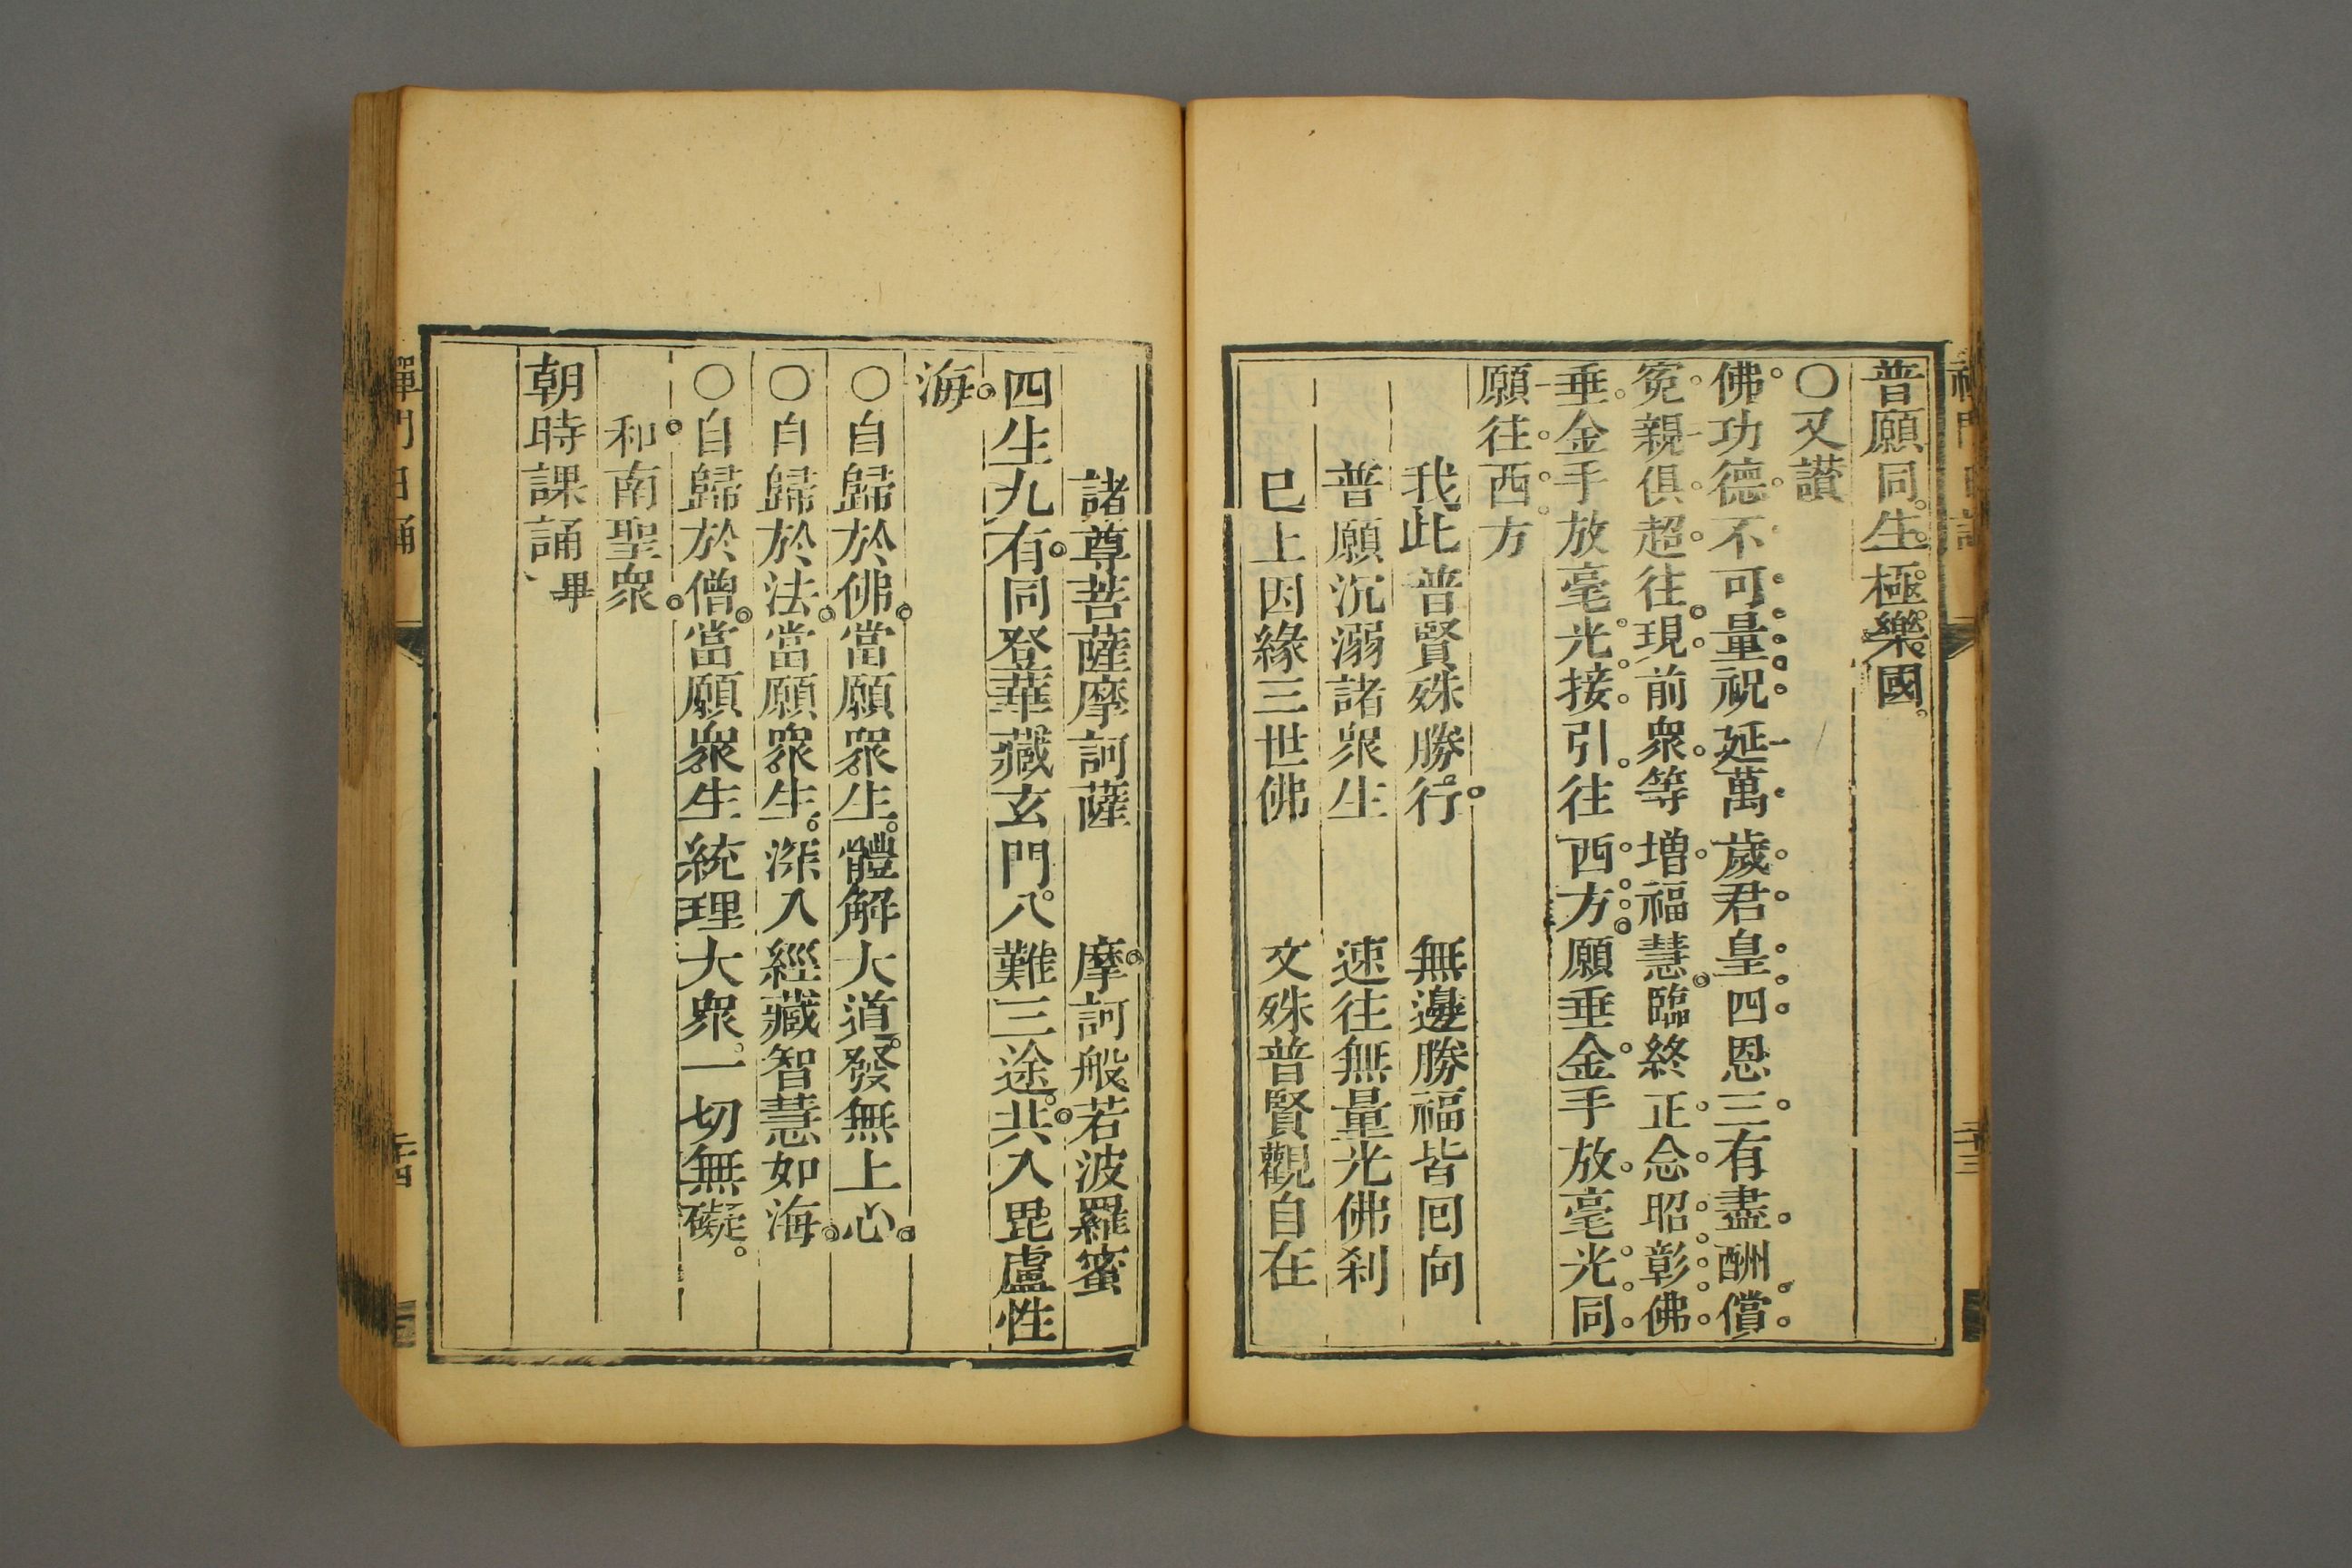 普願同生極樂國。
〇又讃
佛功德不可量祝延萬歲君皇四恩三有盡酬償
寃親俱超往現前衆等增福慧臨終正念昭彰佛
垂金手放毫光接引往西方願垂金手放毫光同
願往西方
我此普賢殊勝行 無邊勝福皆回向
普願沉溺諸衆生 速往無量光佛刹
巳上因緣三世佛 文殊普賢觀自在
諸尊菩薩摩訶薩 摩訶般若波羅蜜
四生九有同登華藏玄門八難三途共入毘盧性
海。
〇自歸於佛當願衆生。體解大道。發無上心。
〇自歸於法當願衆生。深入經藏智慧如海。
〇自歸於僧當願衆生統理大衆。一切無礙。
和南聖衆
朝時課誦畢
禪門日誦
二十四